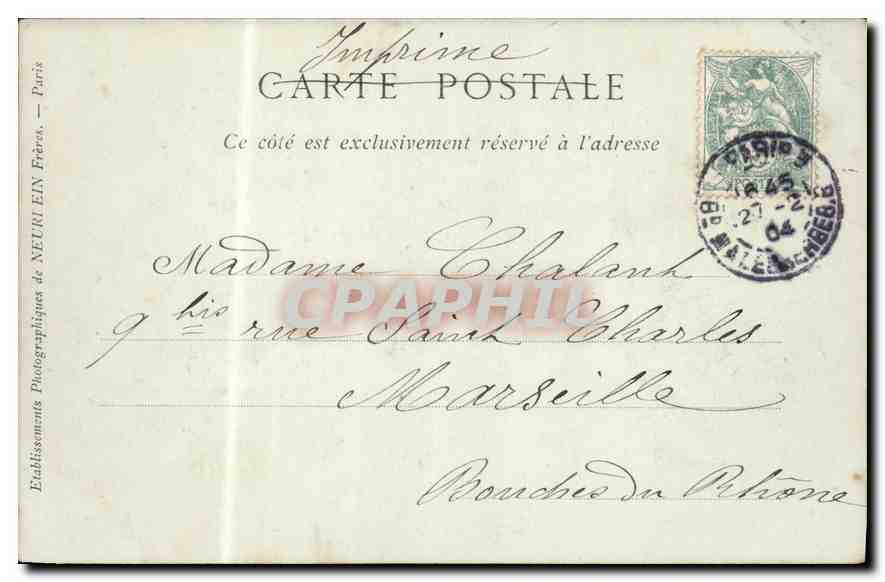 Imprimé
CARTE POSTALE
Ce côté est exclusivement réservé à l'adresse
Madame Chalant
9 bis rue Saint Charles
Marseille
Bouches du Rhône
Etablissements Photographiques de NEURDEIN Frères. — Paris
PARIS
6 45
27 -2
04
Bd MALESHERBES
CPAPHIL